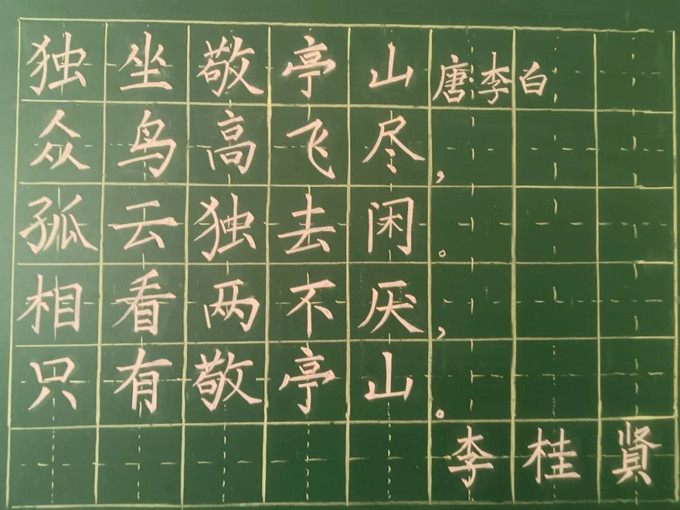 独坐敬亭山 唐:李白
众鸟高飞尽,
孤云独去闲。
相看两不厌,
只有敬亭山。
李桂贤